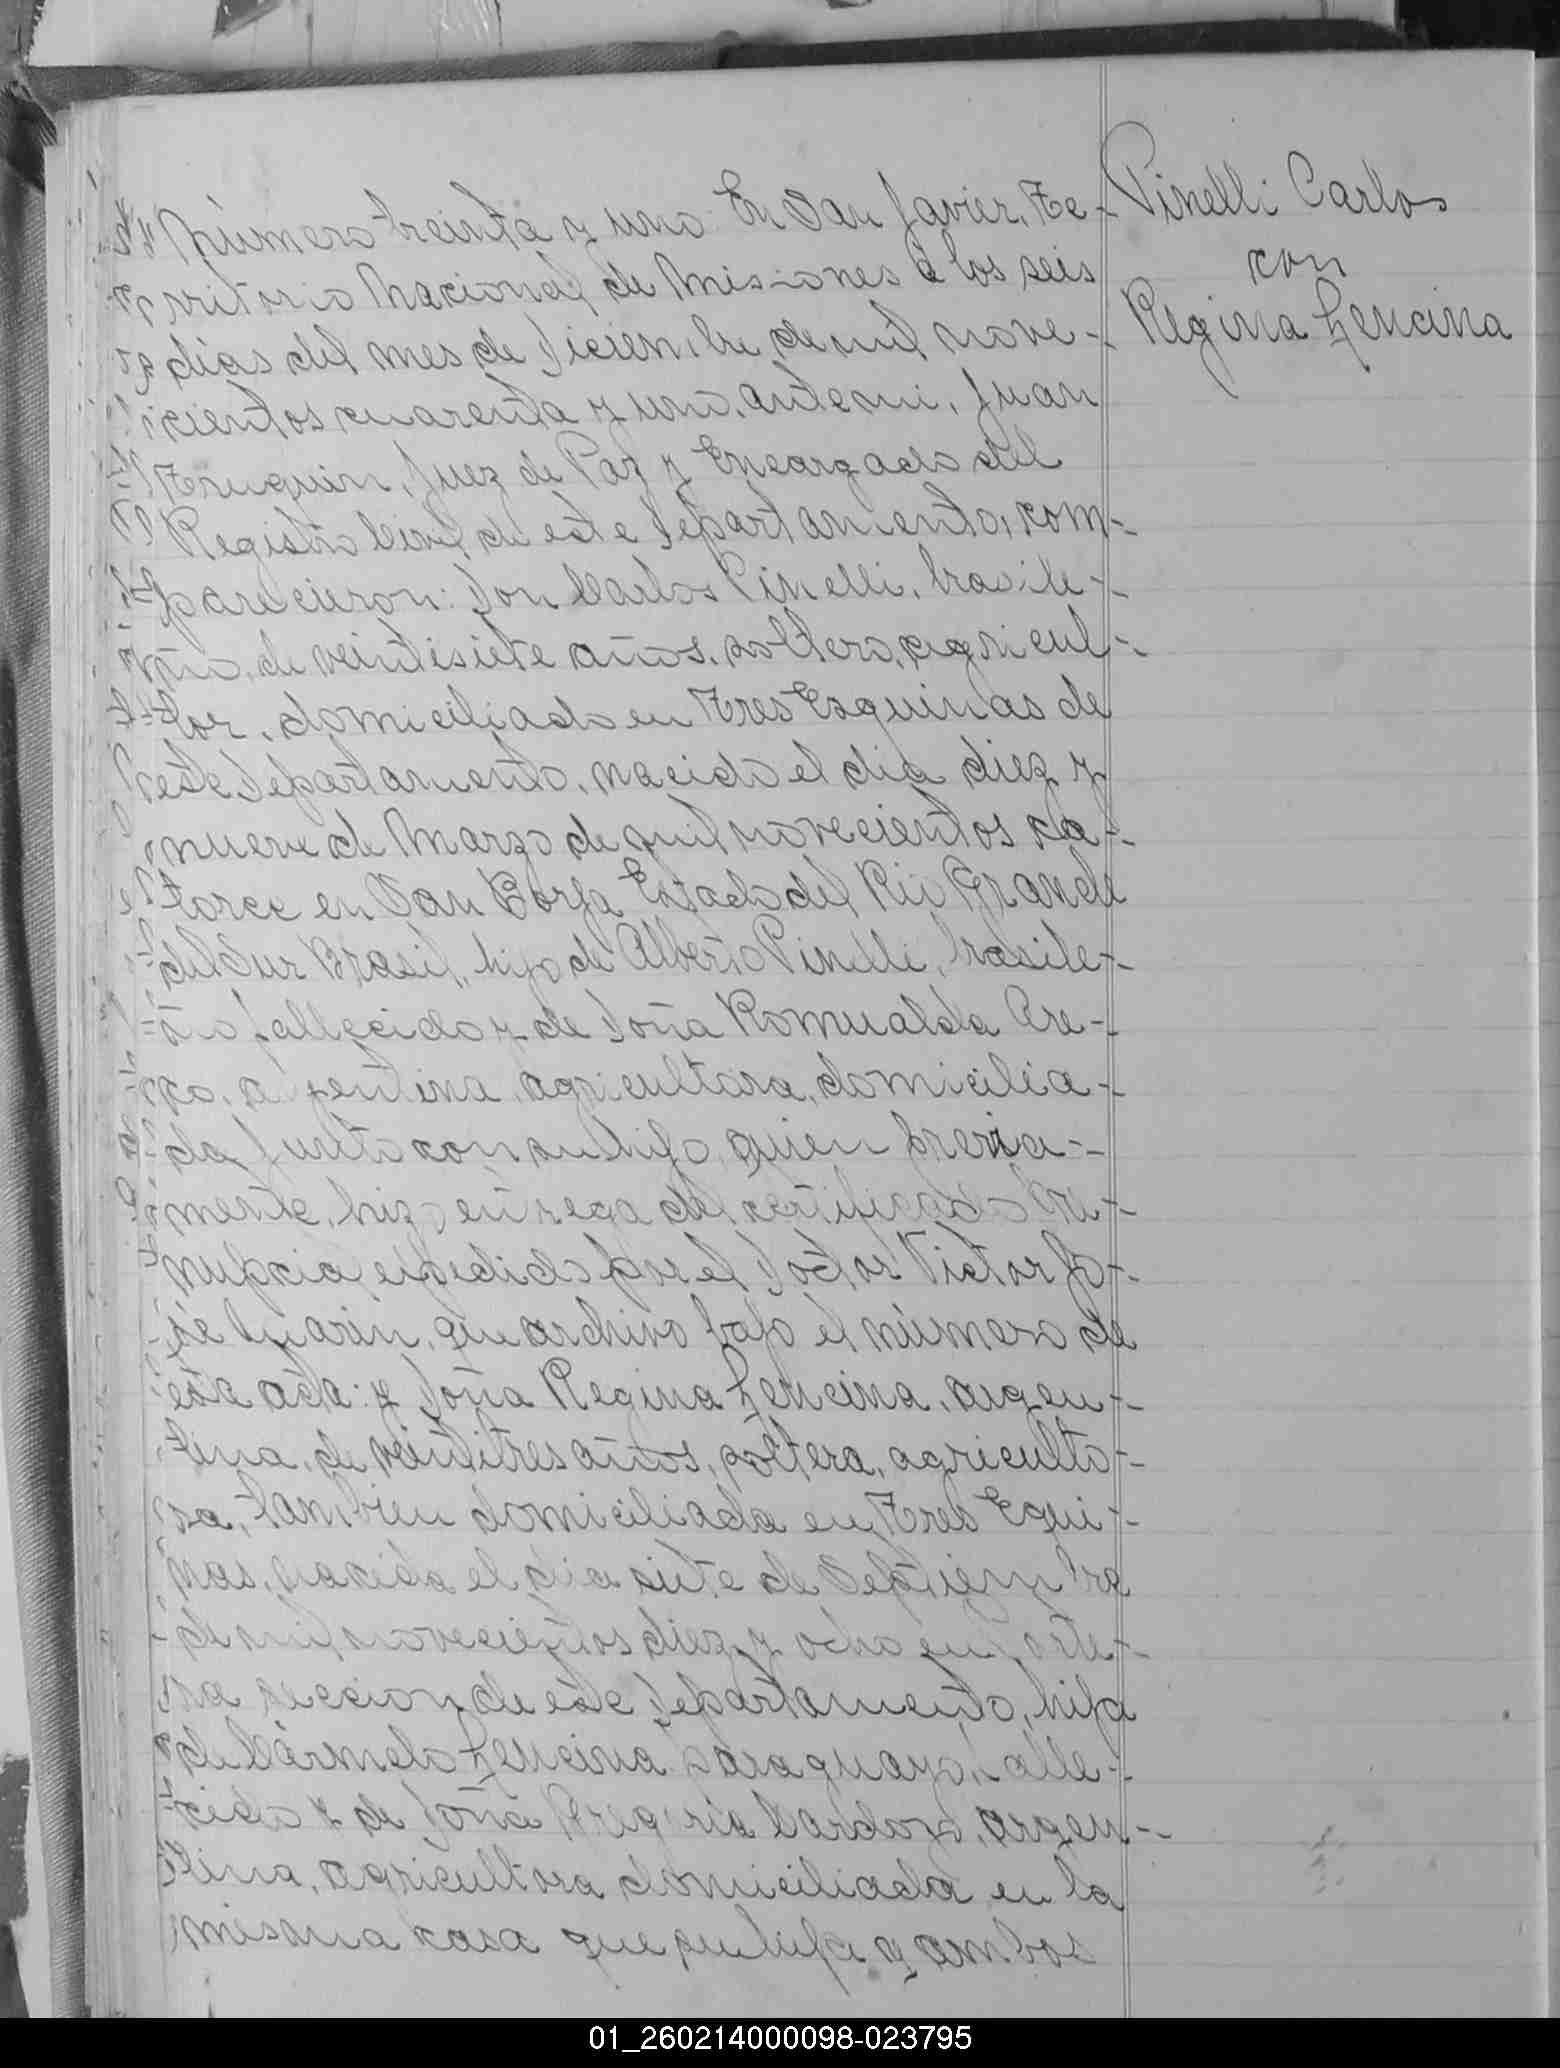 Pinelli Carlos
con
Regina Lencina
Número treinta y uno: En San Javier, Te-
rritorio Nacional de Misiones á los seis
dias del mes de Diciembre de mil nove-
cientos cuarenta y uno, ante mi, Juan
Truquin, Juez de Paz y Encargado del
Registro Civil de este Departamento, com-
parecieron: Don Carlos Pinelli, brasile-
ño, de veintisiete años, soltero, agricul-
tor, domiciliado en Tres Esquinas de
este Departamento, nacido el dia diez y
nueve de Marzo de mil novecientos ca-
torce en San Borja Estado del Rio Grande
del Sur Brasil, hijo de Alberto Pinelli, brasile-
ño fallecido y de Doña Romualda Are-
co, argentina, agricultora, domicilia-
da junto con su hijo, quien previa-
mente, hizo entrega del certificado Pre-
nupcial expedido por el Doctor Victor Jo-
sé Marin, que archivo bajo el número de
esta acta: y Doña Regina Lencina, argen-
tina, de veintitres años, soltera, agriculto-
ra, tambien domiciliada en Tres Equi-
nas, nacida el dia siete de Septiembre
de mil novecientos diez y ocho en
na seccion de este Departamento, hija
de Cármelo Lencina paraguayo, falle-
cido y de Doña Cardozo, argen-
tina, agricultora domiciliada en la
misma casa que su hija y ambos
01_260214000098-023795